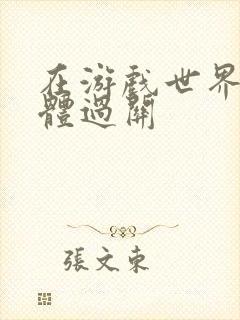 在游戏世界
體過關
張文東